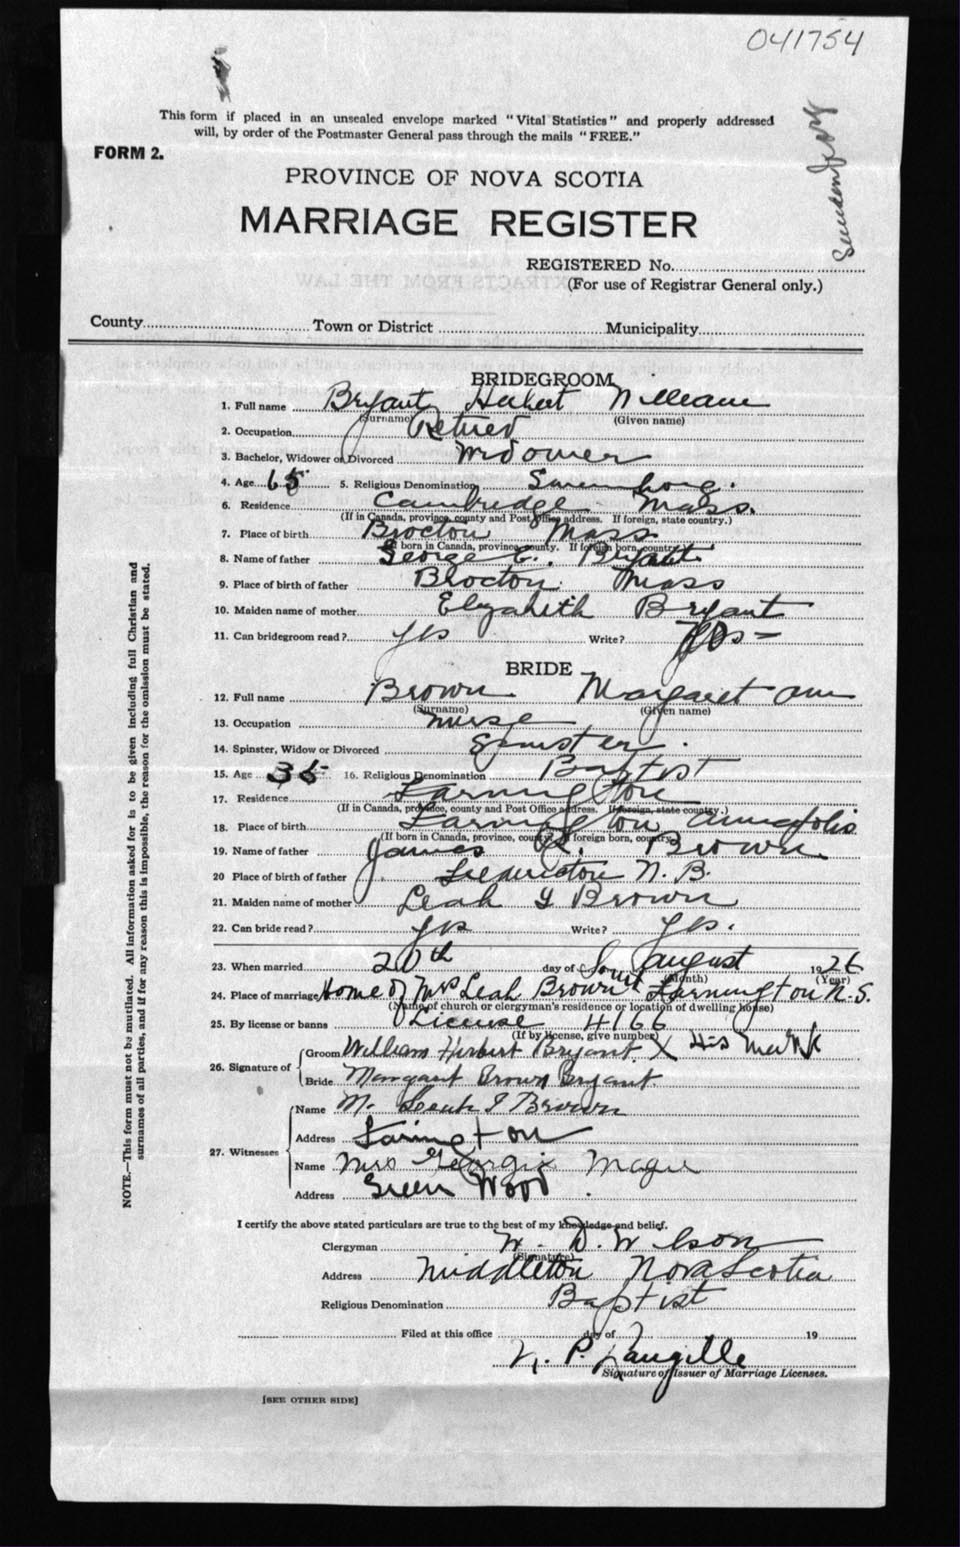 041754
This form if placed in an unsealed envelope marked "Vital Statistics" and properly addressed
will, by order of the Postmaster General pass through the mails "FREE."
FORM 2.
PROVINCE OF NOVA SCOTIA
MARRIAGE REGISTER
REGISTERED No.
(For use of Registrar General only.)
County Town or District Municipality
BRIDEGROOM
1. Full name Bryant Herbert William
(Surname) (Given name)
2. Occupation Retired
3. Bachelor, Widower or Divorced Widower
4. Age 65 5. Religious Denomination
6. Residence Cambridge Mass.
(If in Canada, province, county and Post Office address. If foreign, state country.)
7. Place of birth Brocton Mass
(If born in Canada, province, county. If foreign born, country)
8. Name of father George E. Bryant
9. Place of birth of father Brocton Mass
10. Maiden name of mother Elyzabeth Bryant
11. Can bridegroom read? yes Write? yes
BRIDE
12. Full name Brown Margaret ann
(Surname) (Given name)
13. Occupation nurse
14. Spinster, Widow or Divorced Spinster
15. Age 35 16. Religious Denomination Baptist
17. Residence Farmington
(If in Canada, province, county and Post Office address. If foreign, state country.)
18. Place of birth Farmington annapolis
(If born in Canada, province, county. If foreign born, country)
19. Name of father James R. Brown
20 Place of birth of father N. B.
21. Maiden name of mother Leah J Brown
22. Can bride read? yes Write? yes.
23. When married 20th day of august 1926
(Month) (Year)
24. Place of marriage Home of Mrs Leah Brown Farmington N.S.
(Name of church or clergyman's residence or location of dwelling house)
25. By license or banns License 4166
(If by license, give number)
26. Signature of
Groom William Herbert Bryant. X His Mark
Bride Margaret Brown Bryant
27. Witnesses
Name Leah J Brown
Address Farington
Name Mrs Georgix Magee
Address Green Wood
I certify the above stated particulars are true to the best of my knowledge and belief.
Clergyman W. D. Wilson
(Signature)
Address Middleton Nova Scotia
Religious Denomination Baptist
Filed at this office day of 19
N. P. Langille
Signature of Issuer of Marriage Licenses.
[SEE OTHER SIDE]
NOTE.—This form must not be mutilated. All information asked for is to be given including full Christian and
surnames of all parties, and if for any reason this is impossible, the reason for the omission must be stated.